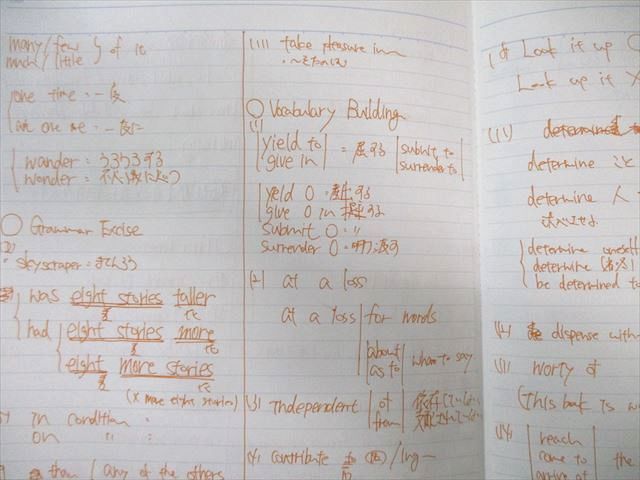 many / few } of it
much / little
one time : 一度
at one time : 一度に
wander : うろうろする
wonder : 不思議に思う
○ Grammar Excise
skyscraper : まてんろう
was eight stories taller
had eight stories more
eight more stories
(× more eight stories)
in condition
on 〃
than any of the others
(11) take pleasure in〜
○ Vocabulary Building
(1)
yield to
give in = 屈する submit to
surrender to
yeld O : 産出する
give O in 提出する
submit O : 〃
surrender O : 明け渡す
(2) at a loss
at a loss for words
about
as to what to say
(3) independent of
from
(4) contribute to /ing〜
& Look it up ○
Look up it ×
(11)
determine こと
determine 人
determine oneself
determine
be determined to
dispense with
worty of
(This book is
reach
come to the
arrive at